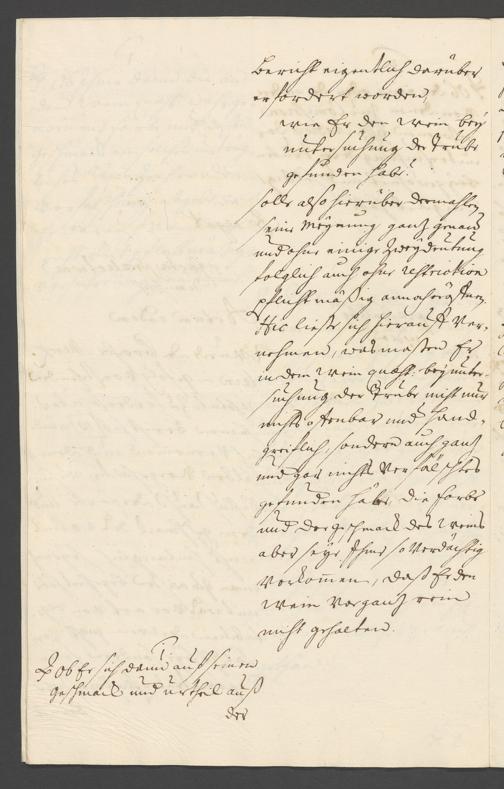 Bericht eigentlich darüber
erfordert worden
wie Er den Wein bey
untersuchung der Trübe
gefunden habe.
solle also hierüber dermahlen
seine Meynung ganz genau
und ohne einige Zweydeutung
folglich auch ohne restriction
pflichtmäßig
Hic ließe sich hierauf ver-
nehmen, was maßen Er
in dem Wein quaest. bey unter-
suchung der Trübe nicht nur
nichts offenbar und hand-
greiflich, sondern auch ganz
und gar nichts Verfälschtes
gefunden habe, die farbe
und der geschmack des Weins
aber seye Ihme so verdächtig
vorkommen, daß Er den
Wein vor ganz rein
nicht gehalten.
Ob Er sich dann auf seinen
geschmack und urtheil auß
der